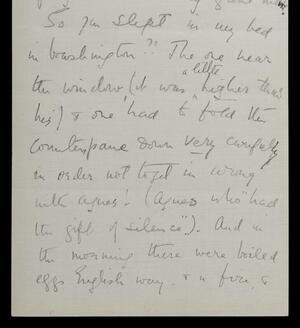 So you slept in my bed
in Washington?! The one near
the window (it was a little higher than
his) & one had to fold the
counterpane down very carefully
in order not to get in wrong
with Agnes! (Agnes who "had
the gift of silence".). And in
the morning there were boiled
eggs English way. &